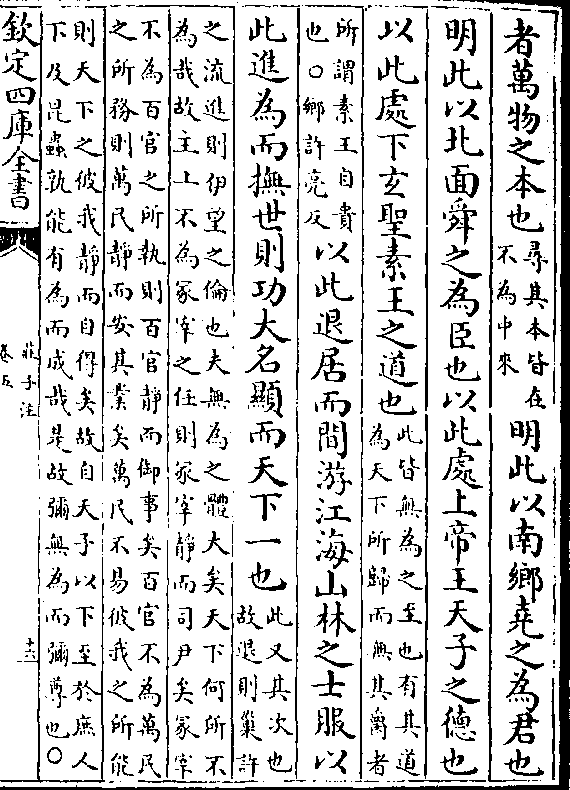 者萬物之本也尋其本皆在不為中來明此以南鄉堯之為君也
明此以北面舜之為臣也以此處上帝王天子之德也
以此處下玄聖素王之道也此皆無為之至也有其道為天下所歸而無其爵者
所謂素王自貴也○鄉許亮反以此退居而間游江海山林之士服以
此進為而撫世則功大名顯而天下一也此又其次也故退則巢許
之流進則伊望之倫也夫無為之體大矣天下何所不
為哉故主上不為冢宰之任則冢宰靜而司尹矣冢宰
不為百官之所執則百官靜而御事矣百官不為萬民
之所務則萬民靜而安其業矣萬民不易彼我之所能
則天下之彼我靜而自得矣故自天子以下至於庶人
下及昆蟲孰能有為而成哉是故彌無為而彌尊也○
欽定四庫全書
莊子注
卷五
十六